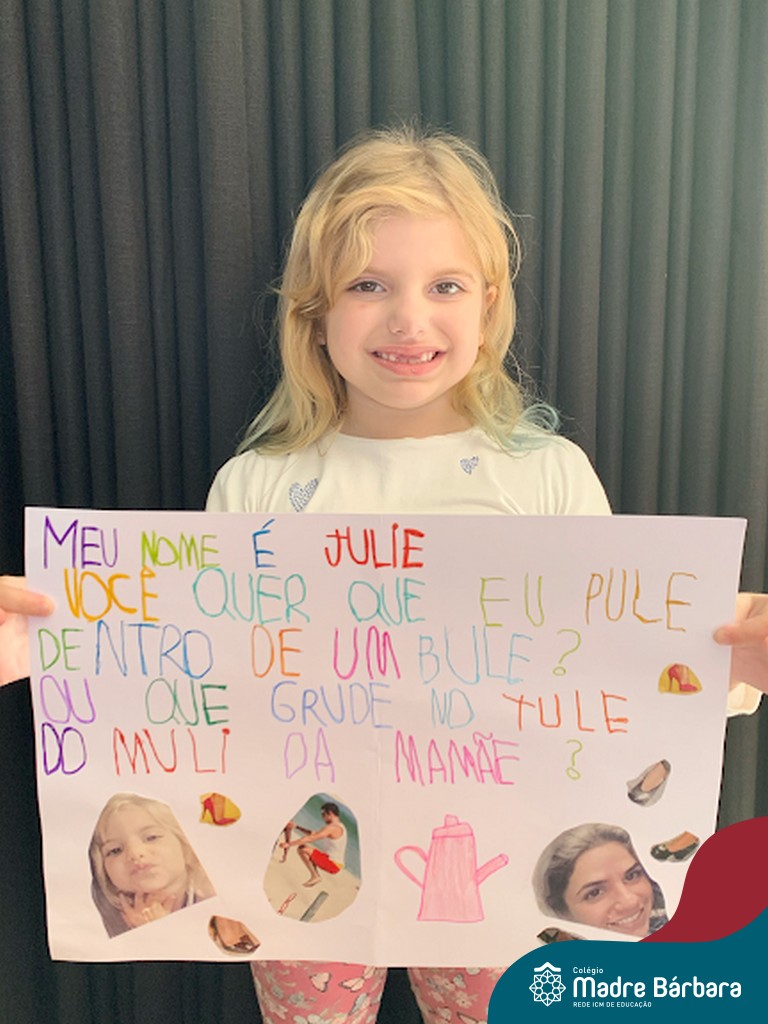 MEU NOME É JULIE
VOCÊ QUER QUE EU PULE
DENTRO DE UM BULE?
OU QUE GRUDE NO TULE
DO MULI DA MAMÃE?
Colégio
Madre Bárbara
REDE ICM DE EDUCAÇÃO